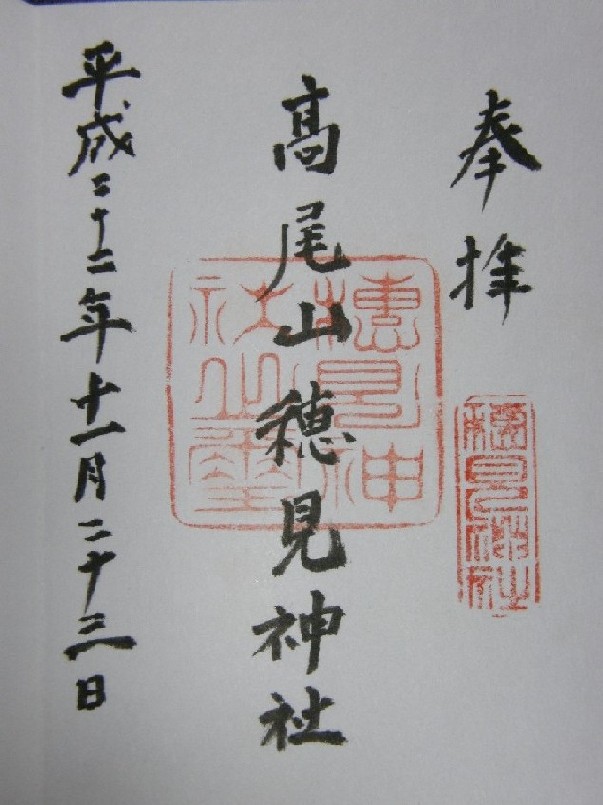 奉拝
高尾山穂見神社
平成二十二年十一月二十三日
穂見神社之璽
穂見神社